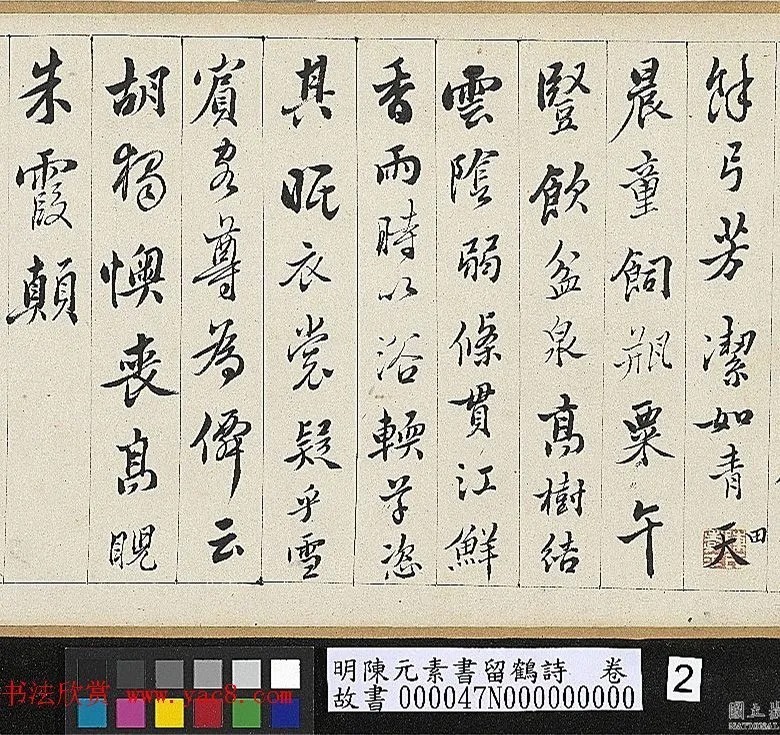 餘弓芳潔如青天
田
晨童飼瓶粟午
豎飲盆泉高樹結
雲陰弱條貫江鮮
香雨時以浴輭草恣
其眠衣裳疑乎雪
賓客尊為僊云
胡獨懊喪高睨
朱霞顛
明陳元素書留鶴詩 卷
故書 000047N000000000
2
书法欣赏 www.yac8.com
國立